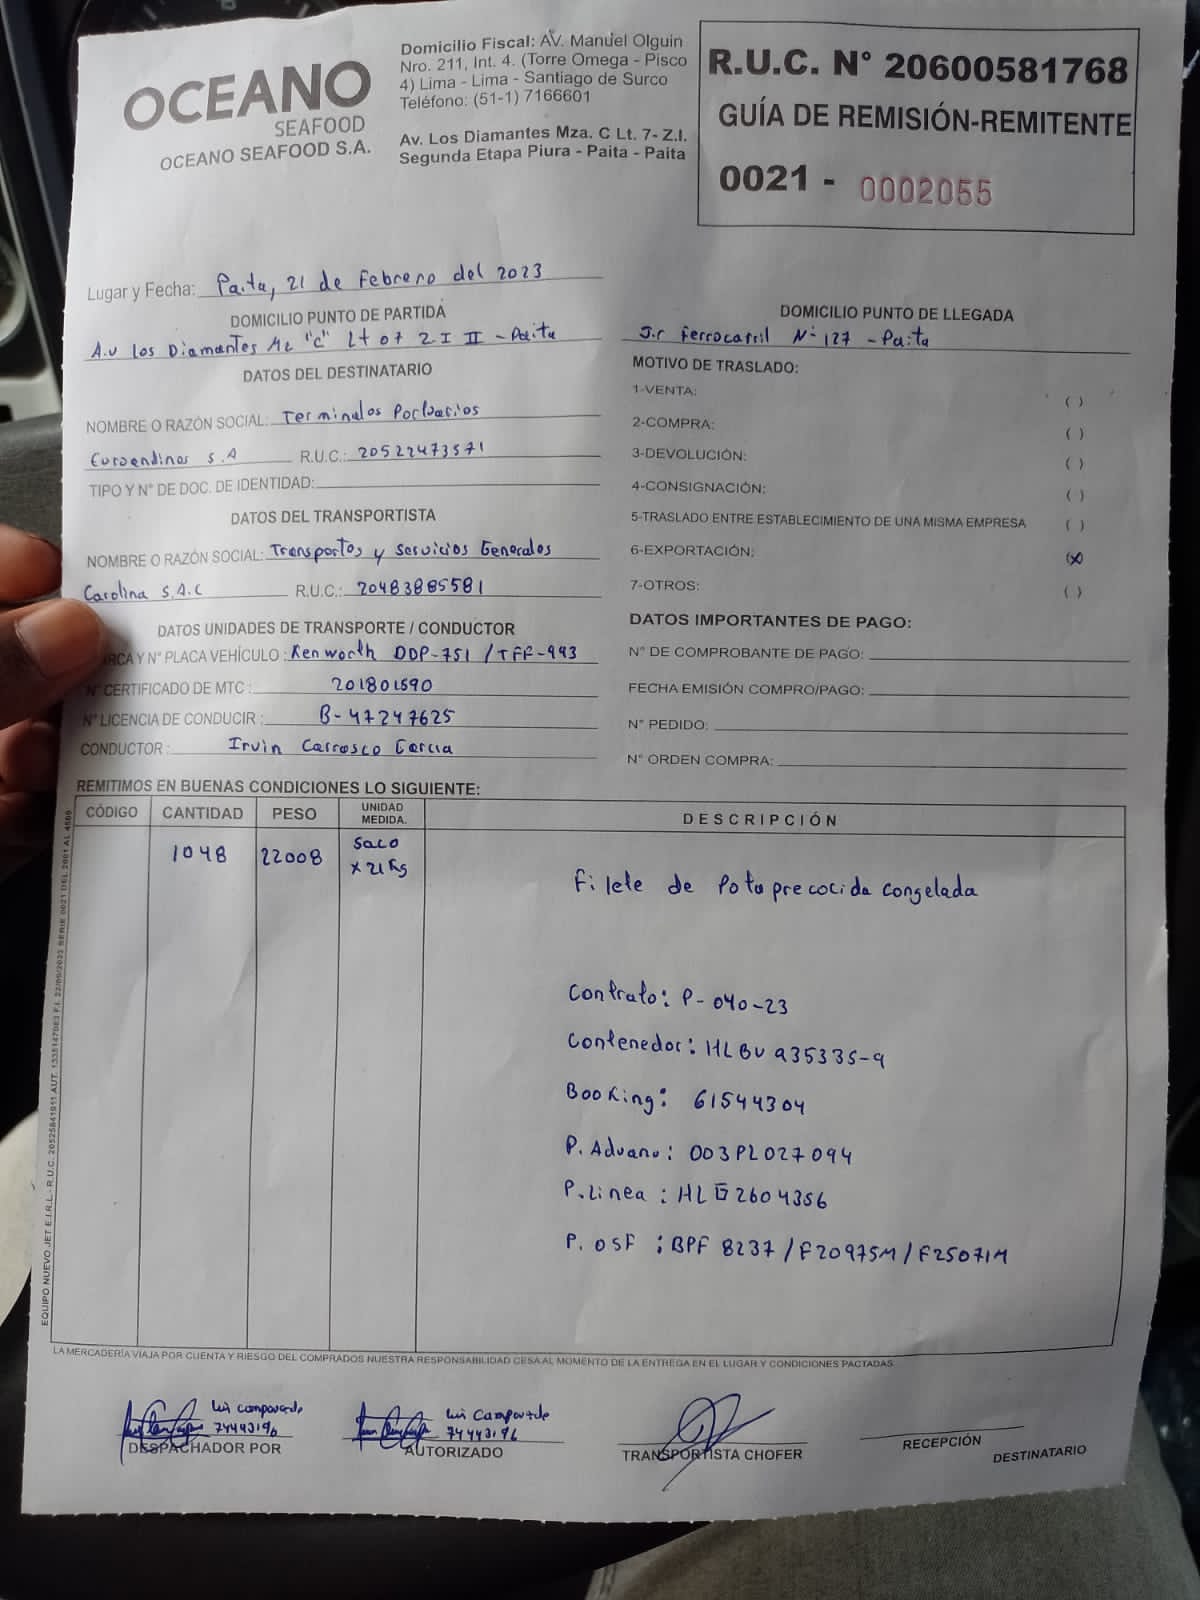 OCEANO
SEAFOOD
OCEANO SEAFOOD S.A.
Domicilio Fiscal: AV. Manuel Olguin
Nro. 211, Int. 4. (Torre Omega - Pisco
4) Lima - Lima - Santiago de Surco
Teléfono: (51-1) 7166601
Av. Los Diamantes Mza. C Lt. 7- Z.I.
Segunda Etapa Piura - Paita - Paita
R.U.C. N° 20600581768
GUÍA DE REMISIÓN-REMITENTE
0021 - 0002055
Lugar y Fecha: Paita, 21 de Febrero del 2023
DOMICILIO PUNTO DE PARTIDA
A.v Los Diamantes Mz "C" Lt 07 Z I II - Paita
DOMICILIO PUNTO DE LLEGADA
J.r Ferrocarril N° 127 - Paita
DATOS DEL DESTINATARIO
NOMBRE O RAZÓN SOCIAL: Terminales Portuarios
Euroandinos S.A R.U.C.: 20522473571
TIPO Y N° DE DOC. DE IDENTIDAD:
DATOS DEL TRANSPORTISTA
NOMBRE O RAZÓN SOCIAL: Transportes y Servicios Generales
Carolina S.A.C R.U.C.: 20483885581
DATOS UNIDADES DE TRANSPORTE / CONDUCTOR
RCA Y N° PLACA VEHÍCULO: Kenworth DDP-751 / TFF-993
N° CERTIFICADO DE MTC: 201801590
N° LICENCIA DE CONDUCIR: B-47247625
CONDUCTOR: Irvin Carrasco Garcia
MOTIVO DE TRASLADO:
1-VENTA: ( )
2-COMPRA: ( )
3-DEVOLUCIÓN: ( )
4-CONSIGNACIÓN: ( )
5-TRASLADO ENTRE ESTABLECIMIENTO DE UNA MISMA EMPRESA ( )
6-EXPORTACIÓN: (x)
7-OTROS: ( )
DATOS IMPORTANTES DE PAGO:
N° DE COMPROBANTE DE PAGO:
FECHA EMISIÓN COMPRO/PAGO:
N° PEDIDO:
N° ORDEN COMPRA:
REMITIMOS EN BUENAS CONDICIONES LO SIGUIENTE:
CÓDIGO CANTIDAD PESO UNIDAD MEDIDA. DESCRIPCIÓN
1048 22008 Saco x 21 Kg
Filete de Pota precocida congelada
Contrato: P-040-23
Contenedor: HLBU 935335-9
Booking: 61544304
P. Aduana: 003PL027094
P. Linea: HLG2604356
P. OSF: BPF 8237 / F20975M / F25071M
EQUIPO NUEVO JET E.I.R.L.- R.U.C. 20525841911 AUT. 1335147083 F.I. 22/09/2022 SERIE 0021 DEL 2001 AL 4500
LA MERCADERÍA VIAJA POR CUENTA Y RIESGO DEL COMPRADOS NUESTRA RESPONSABILIDAD CESA AL MOMENTO DE LA ENTREGA EN EL LUGAR Y CONDICIONES PACTADAS.
Luis Campoverde
74443196
DESPACHADOR POR
Luis Campoverde
74443196
AUTORIZADO
TRANSPORTISTA CHOFER
RECEPCIÓN
DESTINATARIO